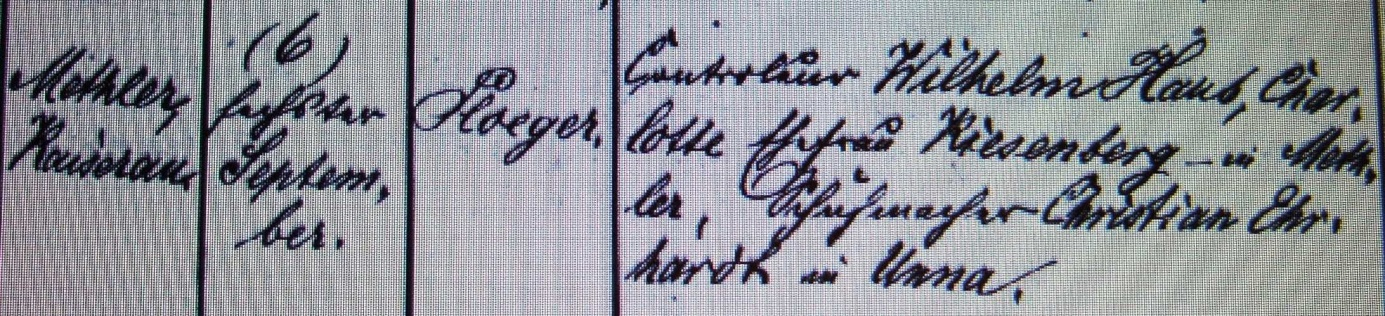 Methler,
Kaiserau,
(6)
sechster
Septem,
ber.
Hoeger.
Controleur Wilhelm Haus, Char,
lotte Ehefrau Riesenberg – in Meth,
ler, Schuhmacher Christian Ehr,
hardt in Unna.